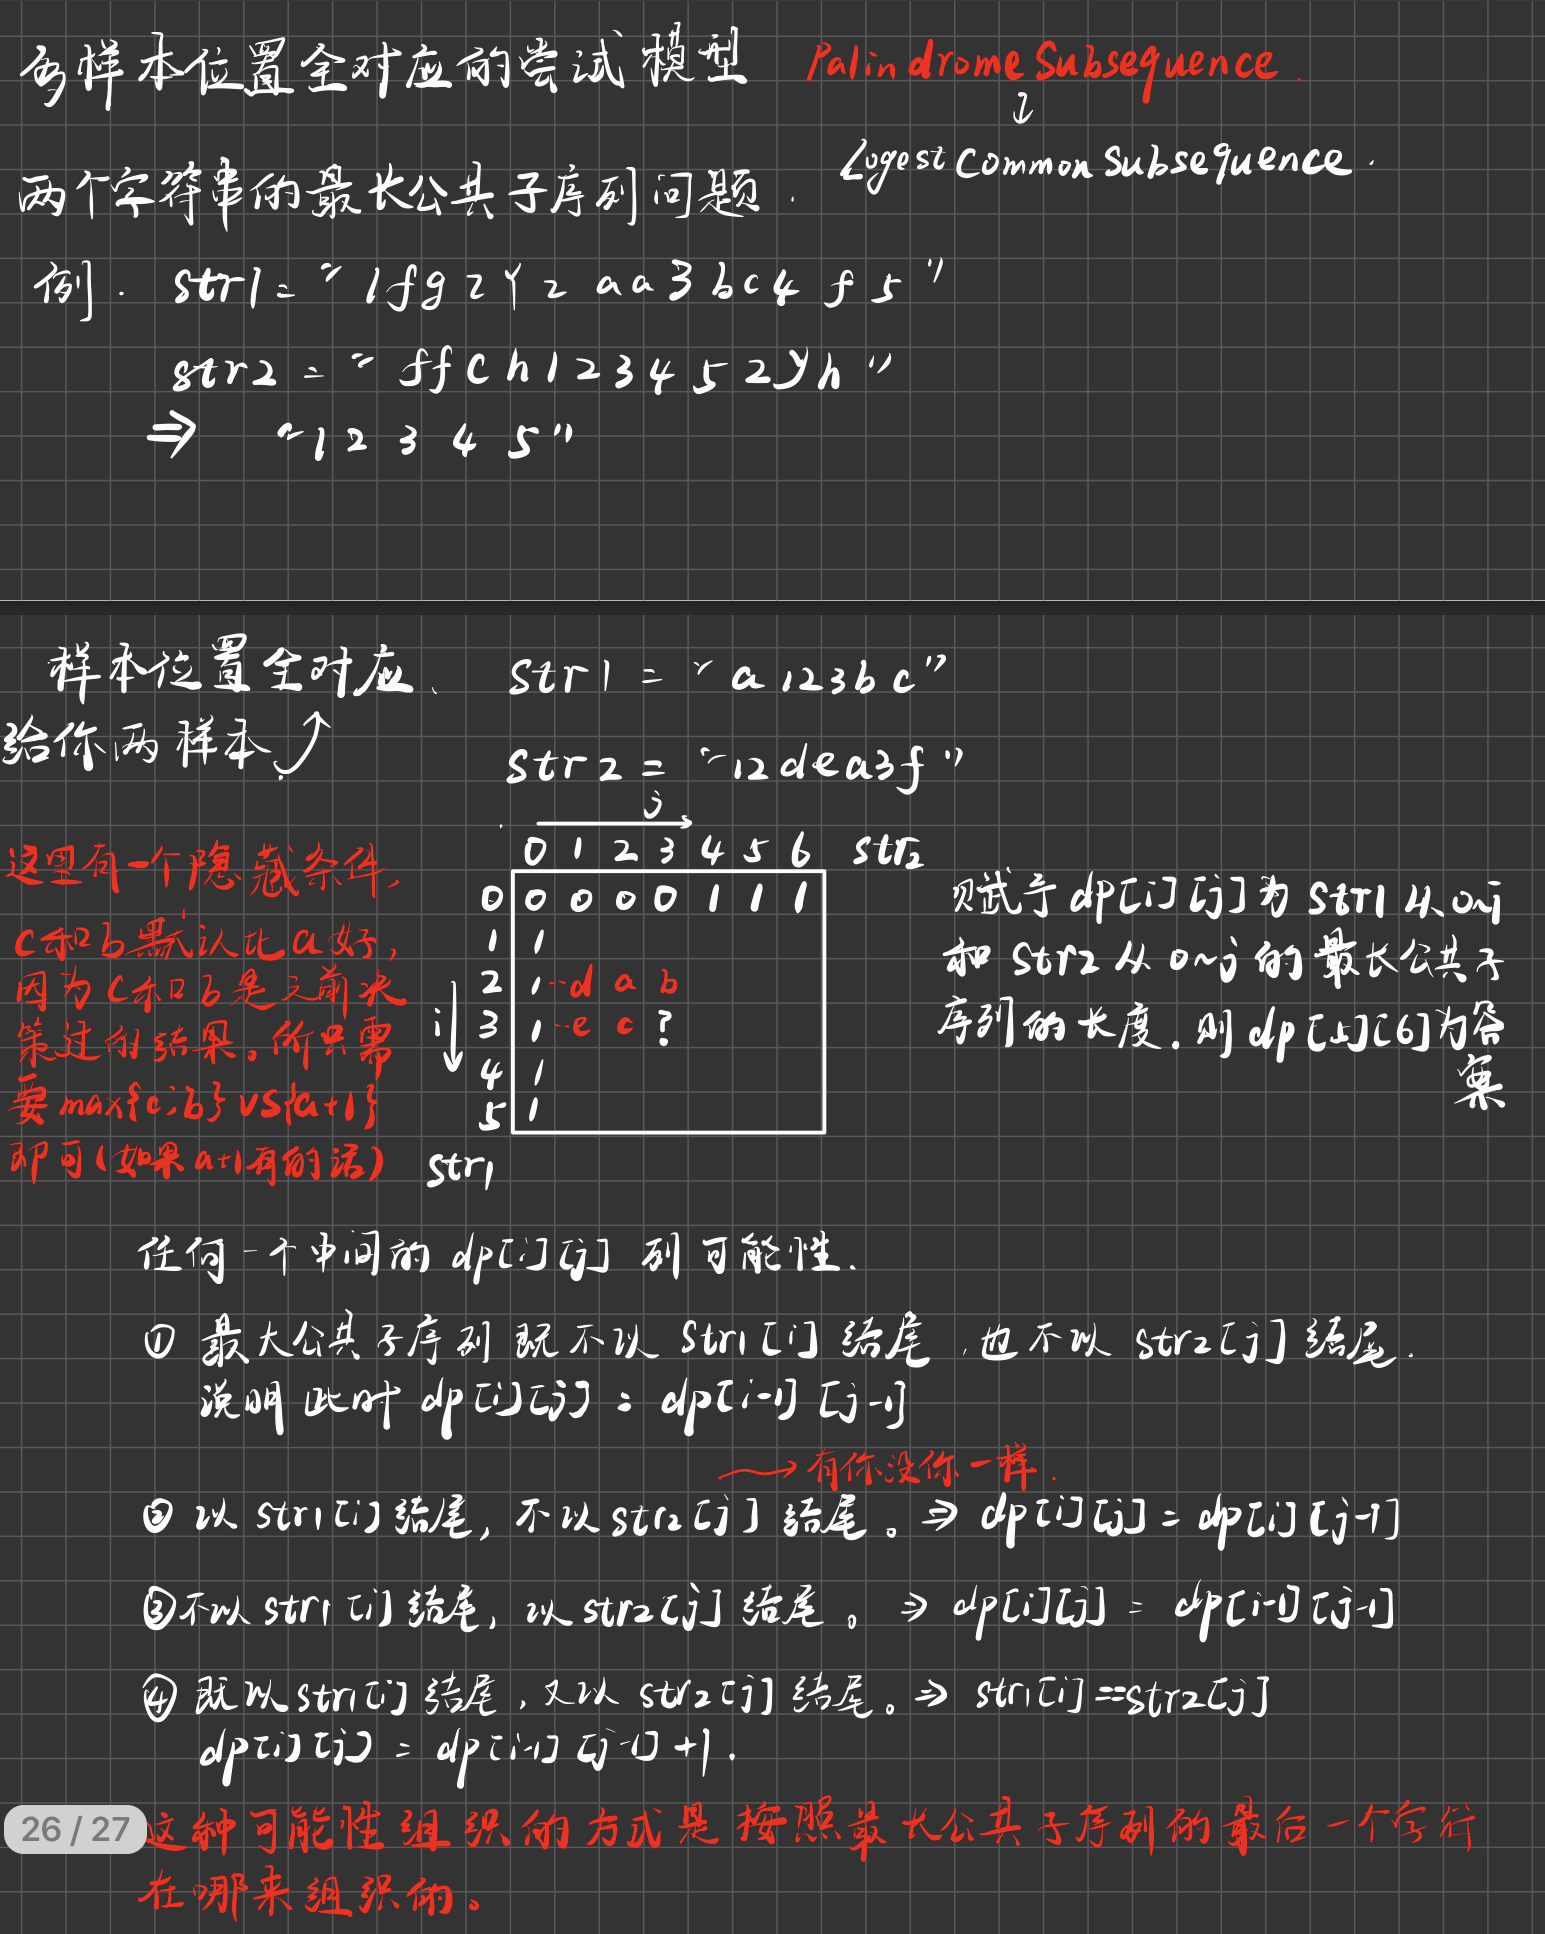 多样本位置全对应的尝试模型 Palindrome Subsequence.
↓
Logest Common Subsequence.
两个字符串的最长公共子序列问题.
例. str1 = "1fg2Y2aa3bc4f5"
str2 = "ffch123452yh"
⇒ "12345"
样本位置全对应. str1 = "a123bc"
给你两样本.
str2 = "12dea3f"
j
0 1 2 3 4 5 6 str2
0 0 0 0 0 1 1 1
1 1
2 1 --d a b
i 3 1 --e c ?
4 1
5 1
str1
这里有一个隐藏条件,
c和b默认比a好,
因为c和b是之前决
策过的结果。所只需
要max{c,b} vs{a+1}
即可(如果a+1有的话)
赋予dp[i][j]为str1从0~i
和str2从0~j的最长公共子
序列的长度.则dp[5][6]为答
案
任何一个中间的dp[i][j]列可能性.
① 最大公共子序列既不以str1[i]结尾,也不以str2[j]结尾.
说明此时dp[i][j] = dp[i-1][j-1]
→有你没你一样.
② 以str1[i]结尾,不以str2[j]结尾。⇒ dp[i][j] = dp[i][j-1]
③不以str1[i]结尾,以str2[j]结尾。⇒ dp[i][j] = dp[i-1][j-1]
④ 既以str1[i]结尾,又以str2[j]结尾。⇒ str1[i]==str2[j]
dp[i][j] = dp[i-1][j-1]+1.
26 / 27
这种可能性组织的方式是按照最长公共子序列的最后一个字符
在哪来组织的。